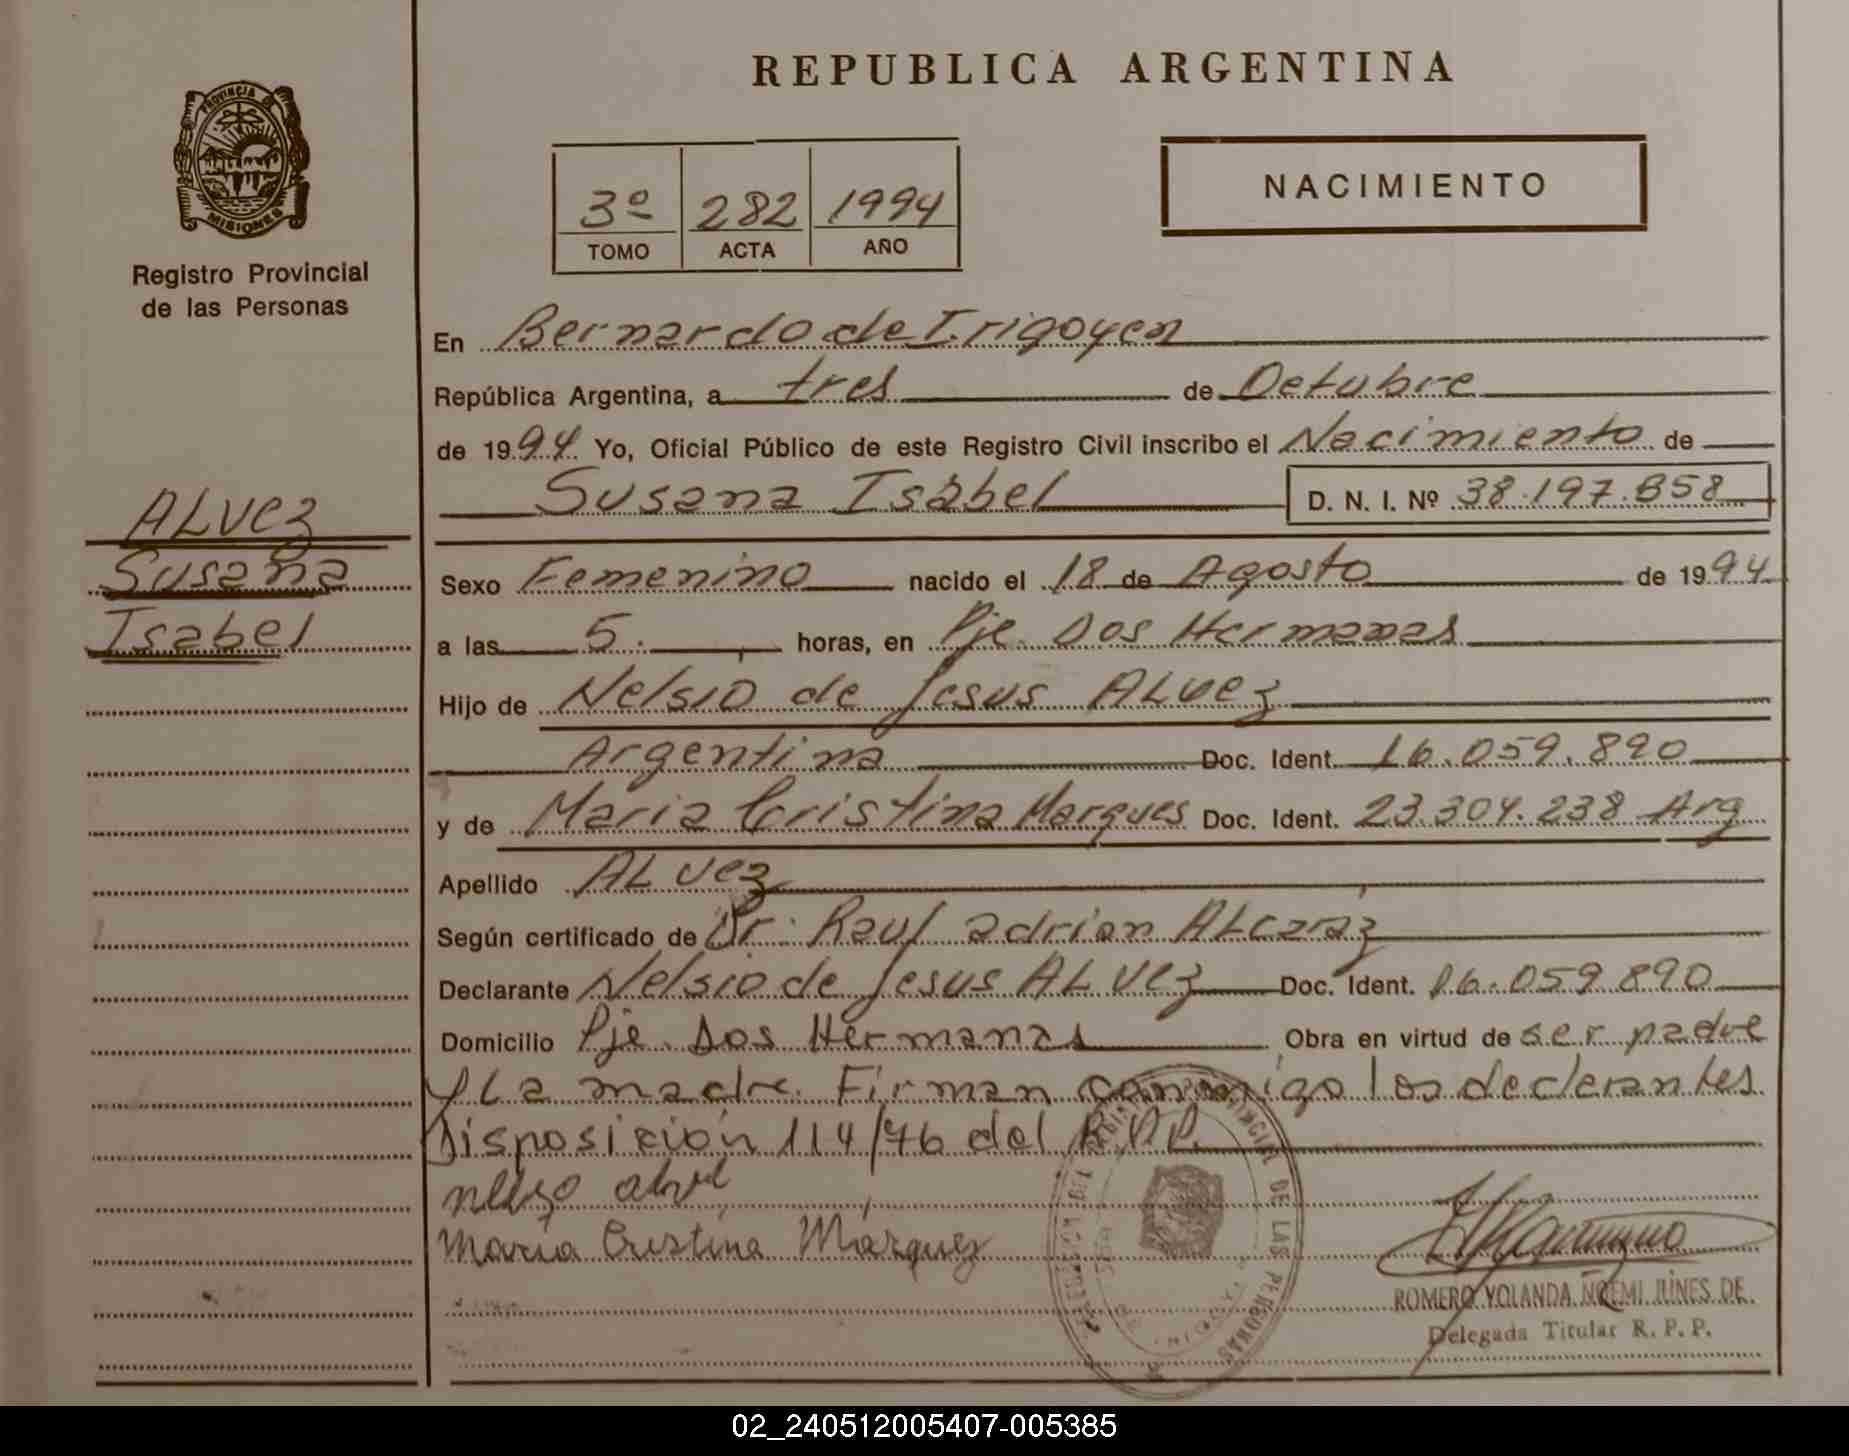 REPUBLICA ARGENTINA
PROVINCIA DE
MISIONES
Registro Provincial
de las Personas
3º 282 1994
TOMO ACTA AÑO
NACIMIENTO
En Bernardo de Irigoyen
República Argentina, a tres de Octubre
de 1994 Yo, Oficial Público de este Registro Civil inscribo el Nacimiento de
Susana Isabel D. N. I. Nº 38.197.858
ALVez
Susana
Isabel
Sexo Femenino nacido el 18 de Agosto de 1994
a las 5. horas, en Pje. Dos Hermanas
Hijo de Nelsio de Jesus ALvez
Argentina Doc. Ident. 16.059.890
y de Maria Cristina Marques Doc. Ident. 23.304.238 Arg
Apellido ALvez
Según certificado de Dr. Raul adrian ALcaraz
Declarante Nelsio de Jesus ALVez Doc. Ident. 16.059.890
Domicilio Pje. Dos Hermanas Obra en virtud de ser padre
y La madre. Firman conmigo los declarantes
Disposición 114/76 del R.P.P.
María Cristina Márquez
DE LAS PERSONAS
ROMERO YOLANDA NOEMI JUNES DE
Delegada Titular R. P. P.
02_240512005407-005385